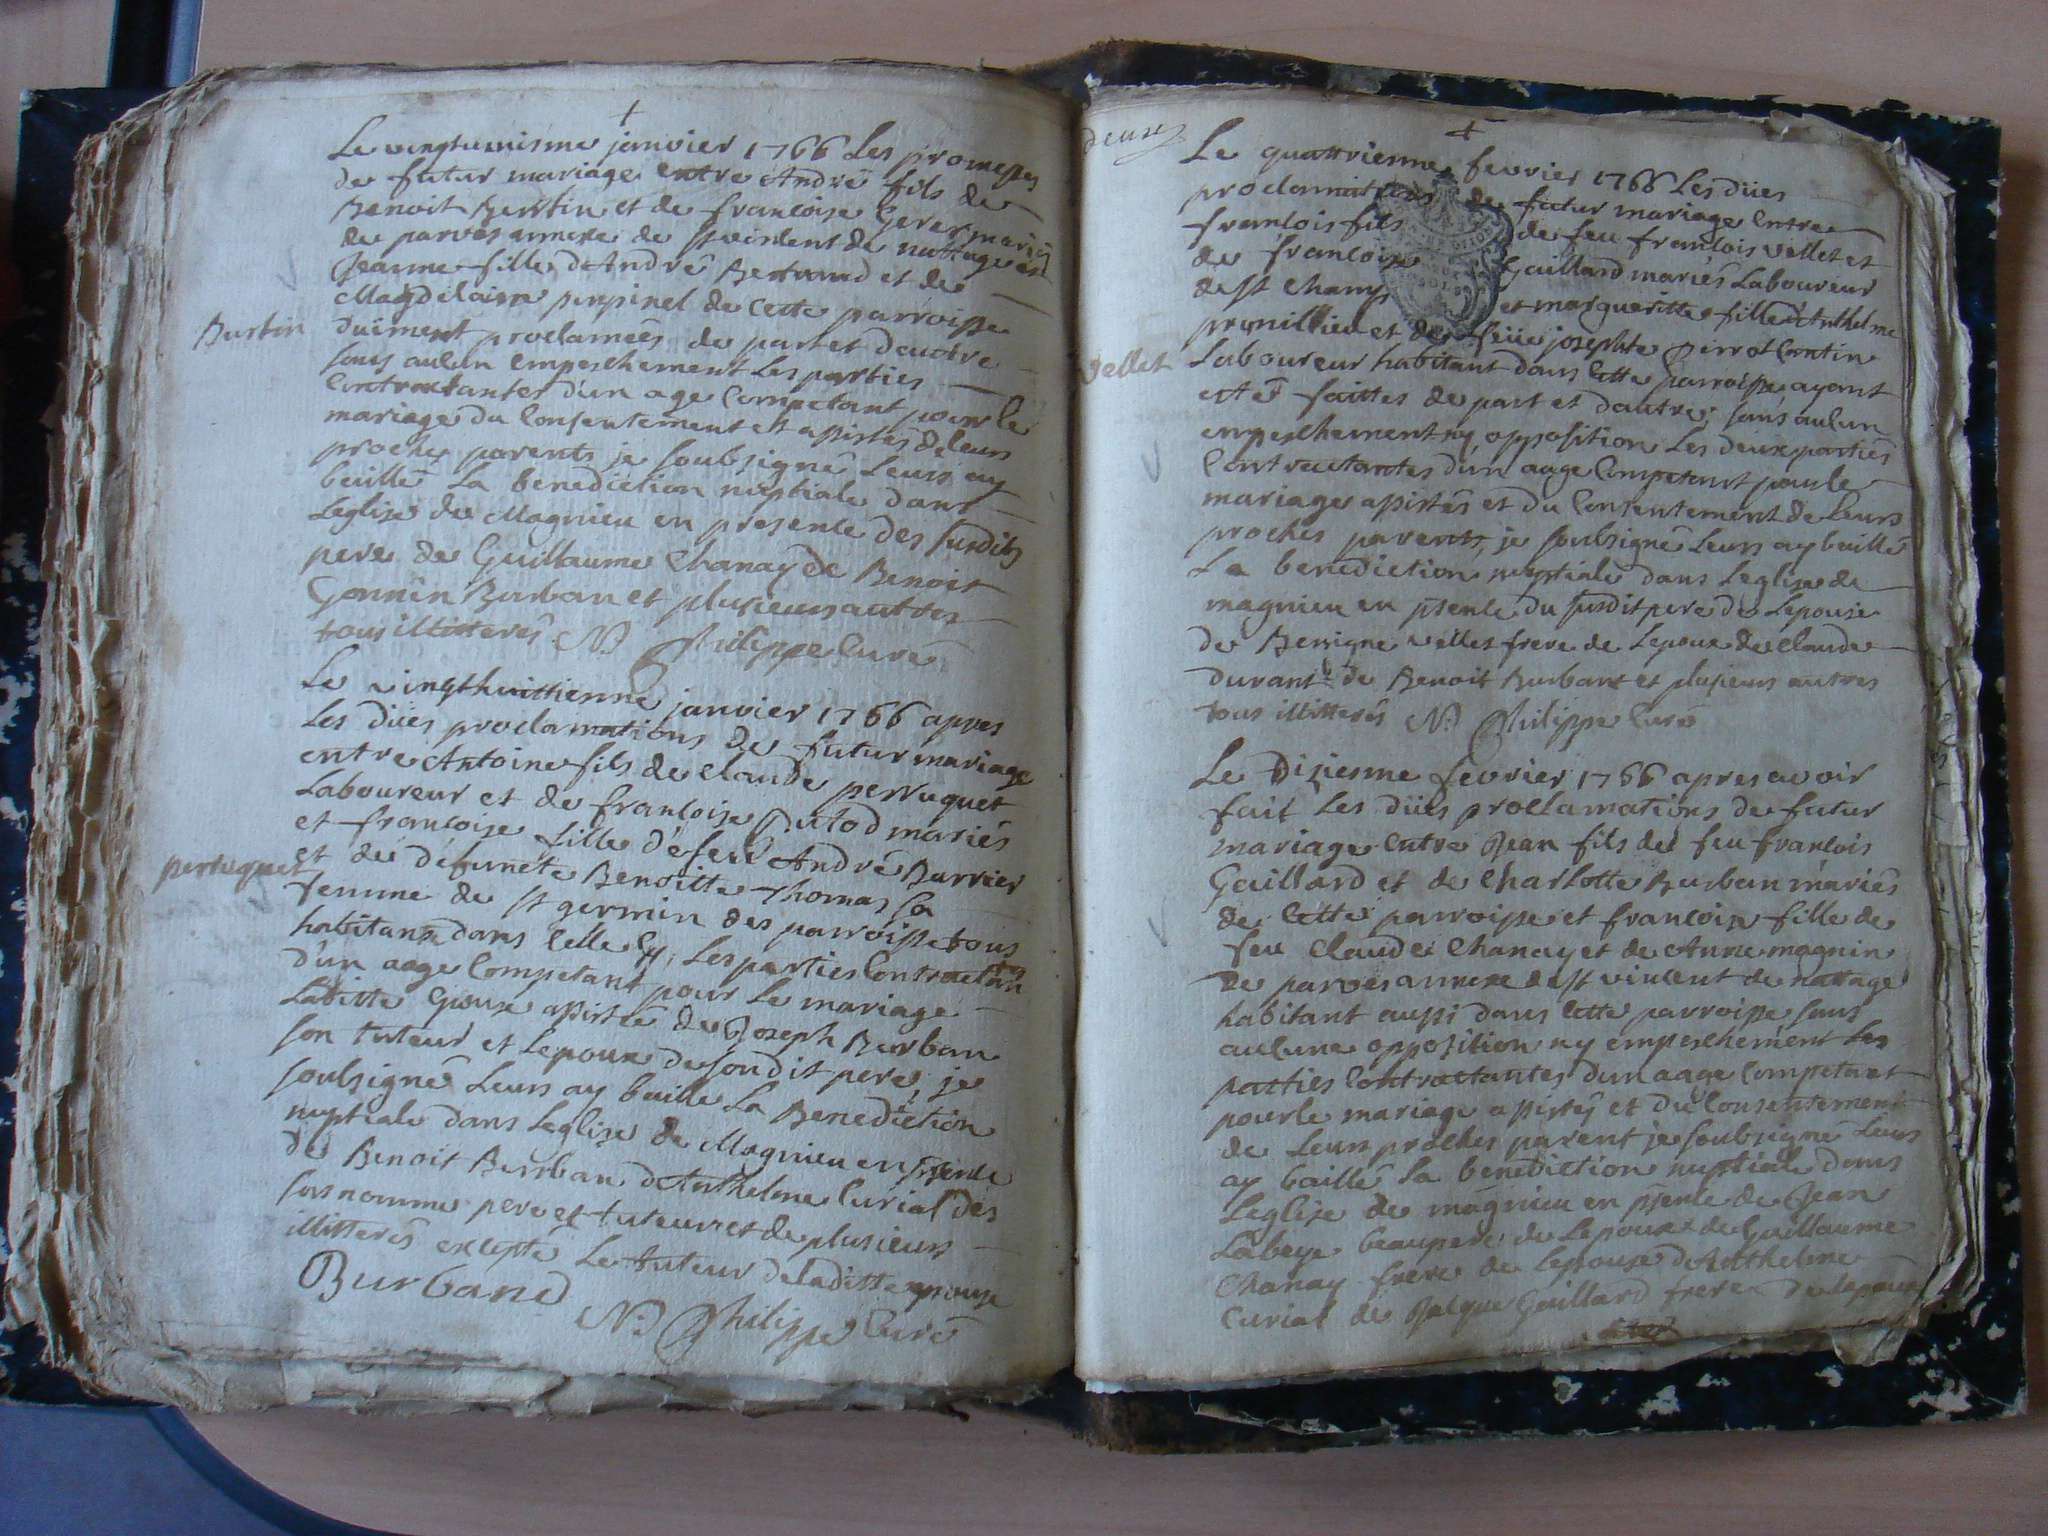 +
Le vingtunisme janvier 1766 Les promesses
de futur mariage entre André fils de
Benoit Bertin et de francoise Gerer mariés
de parves annexe de st vincent de nattage et
Jeanne fille d'André Bertrand et de
Magdelaine pupinel de cette parroisse
Burtin
duiment proclamées de part et d'autre
sans aucun empeschement Les parties
Contractantes d'un age Competant pour le
mariage du Consentement et assistés de leurs
proche parents je soubsigné Leurs ay
baillé La benediction nuptiale dans
Leglise de Magnieu en presence des susdits
pere de Guillaume Chanay de Benoit
Gonnin Burban et plusieurs autres
tous illitterés N. Philippe Curé
Le vingthuittienne janvier 1766 appres
Les düés proclamations de futur mariage
entre Antoine fils de Claude perruquet
Laboureur et de francoise Putod mariés
et francoise fille dé feu André Burrier
perruquet
et de défuncte Benoitte Thomas sa
femme de st germin des parroisse tous
habitans dans Celle Cy, Les parties Contractantes
d'un aage Competant pour Le mariage
Laditte Epouse assistée de Joseph Burban
son tuteur et Lepoux de sondit pere, je
soubsigné Leurs ay baille La Benediction
nuptiale dans Leglise de Magnieu en psence
de Benoit Burban d'Anthelme Curial des
susnommé pere et tuteur et de plusieurs
illitterés excepté Le tuteur de laditte epouse
Burband
N. Philippe Curé
deux
+
Le quattrienne fevrier 1766 Les düés
proclamations de futur mariage Entre
francois fils de feu francois vellet et
de francoise Gaillard mariés Laboureur
de st Champ et margueritte fille d'Anthelme
prunillieu et de feüe josephte Perrot Contin
vellet
Laboureur habitant dans Cette parroisse ayant
estés faittes de part et dautre, sans aucun
empeschement ny opposition Les deux parties
Contractantes d'un aage Competant pour le
mariage assistés et du Consentement de Leurs
proches parents, je soubsigné Leurs ay baillé
La benediction nuptiale dans Leglise de
magnieu en psence du susdit pere de Lepouse
de Benigne velles frere de Lepoux de Claude
durant de Benoit Burbant et plusieurs autres
tous illitterés N. Philippe Curé
Le Dizieme fevrier 1766 apres avoir
fait Les düés proclamations de futur
mariage Entre Jean fils de feu francois
Gaillard et de Charlotte Burban mariés
de Cette parroisse et francoise fille de
feu Claude Chanay et de Anne magnin
De parves annexe de st vincent de nattage
habitant aussi dans Cette parroisse sans
aucune opposition ny empeschement Les
parties Contractantes dun aage Competant
pour le mariage assistés et du Consentement
de Leurs proches parent je soubsigné Leurs
ay baillé La benediction nuptiale dans
Leglise de magnieu en psence de Jean
Labeye beaupere de Lepoux de Guillaume
Chanay frere de Lepouse d'Anthelme
Curial de Jacque Gaillard frere de Lepoux